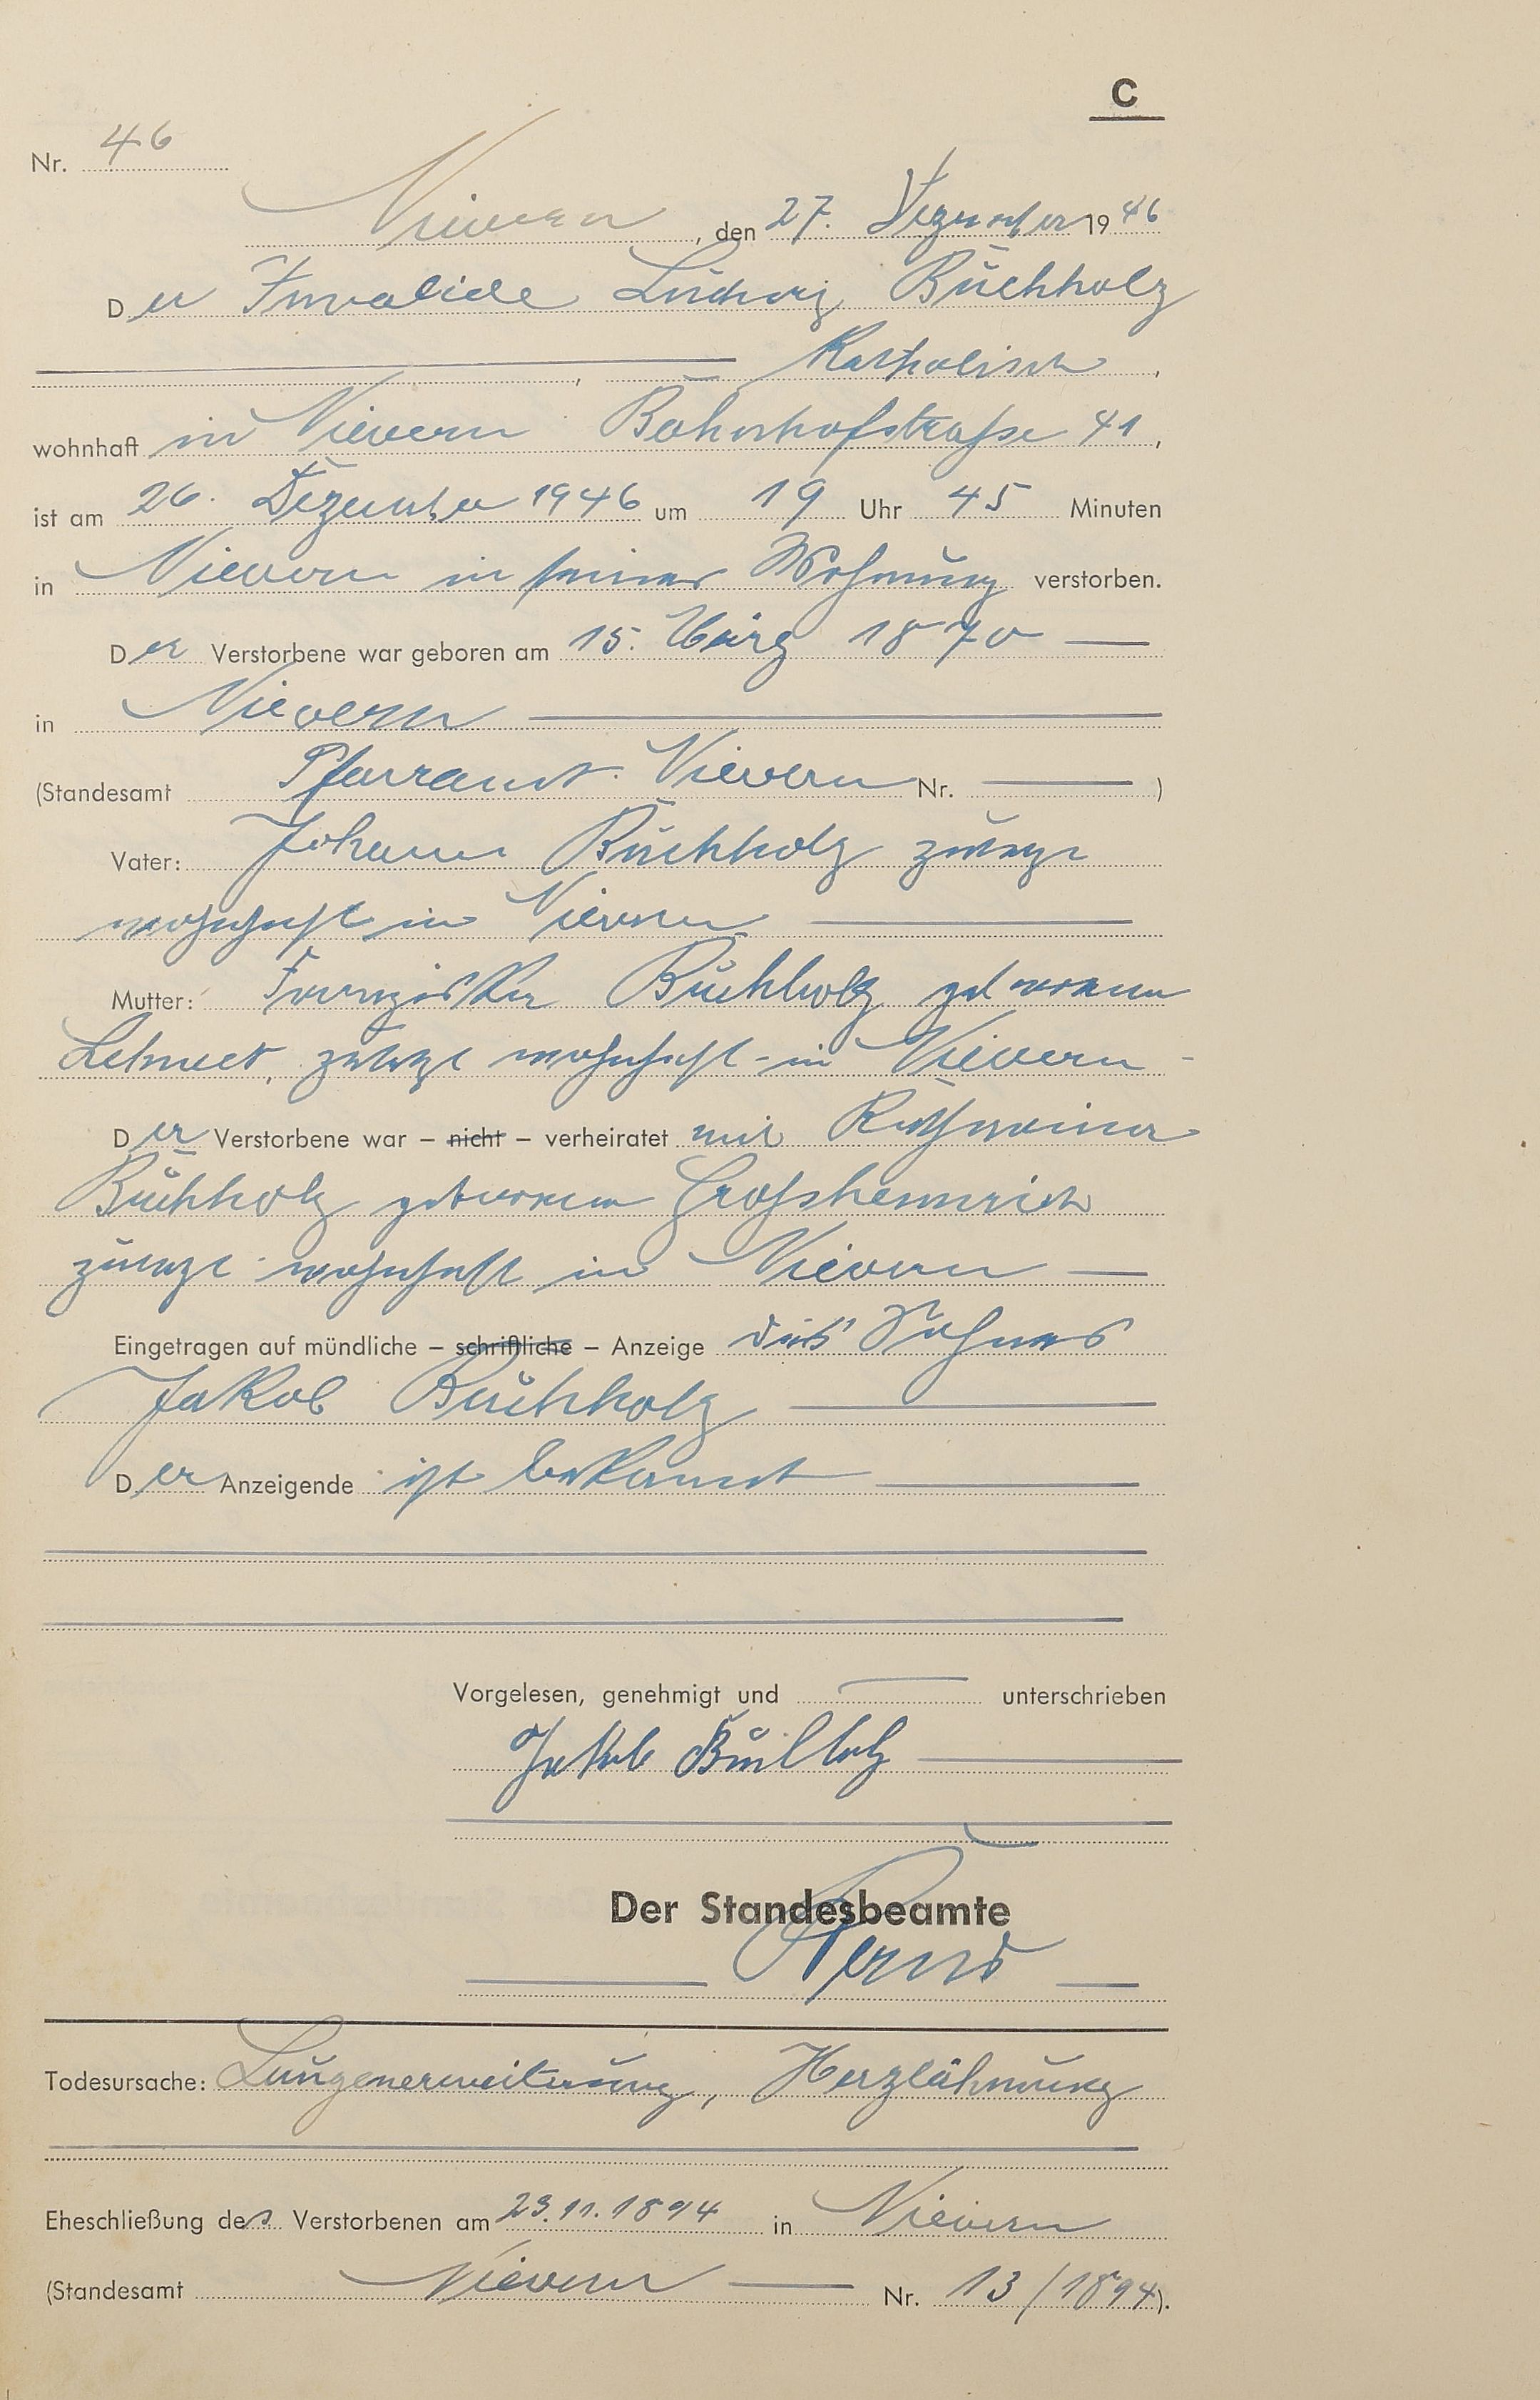 C
Nr. 46
Nievern, den 27. Dezember 1946
Der Invalide Ludwig Buchholz
Katholisch,
wohnhaft in Nievern Bahnhofstraße 41,
ist am 26. Dezember 1946 um 19 Uhr 45 Minuten
in Nievern in seiner Wohnung verstorben.
Der Verstorbene war geboren am 15. März 1870
in Nievern
(Standesamt Pfarramt Nievern Nr. )
Vater: Johann Buchholz zuletzt
wohnhaft in Nievern
Mutter: Franziska Buchholz geborene
zuletzt wohnhaft in Nievern
Der Verstorbene war – nicht – verheiratet mit
Buchholz geborene Großhennrich
zuletzt wohnhaft in Nievern
Eingetragen auf mündliche – schriftliche – Anzeige des Sohnes
Jakob Buchholz
Der Anzeigende ist bekannt
Vorgelesen, genehmigt und unterschrieben
Jakob Buchholz
Der Standesbeamte
Todesursache: Lungenerweiterung, Herzlähmung
Eheschließung des Verstorbenen am 23.11.1894 in Nievern
(Standesamt Nievern Nr. 13/1894).